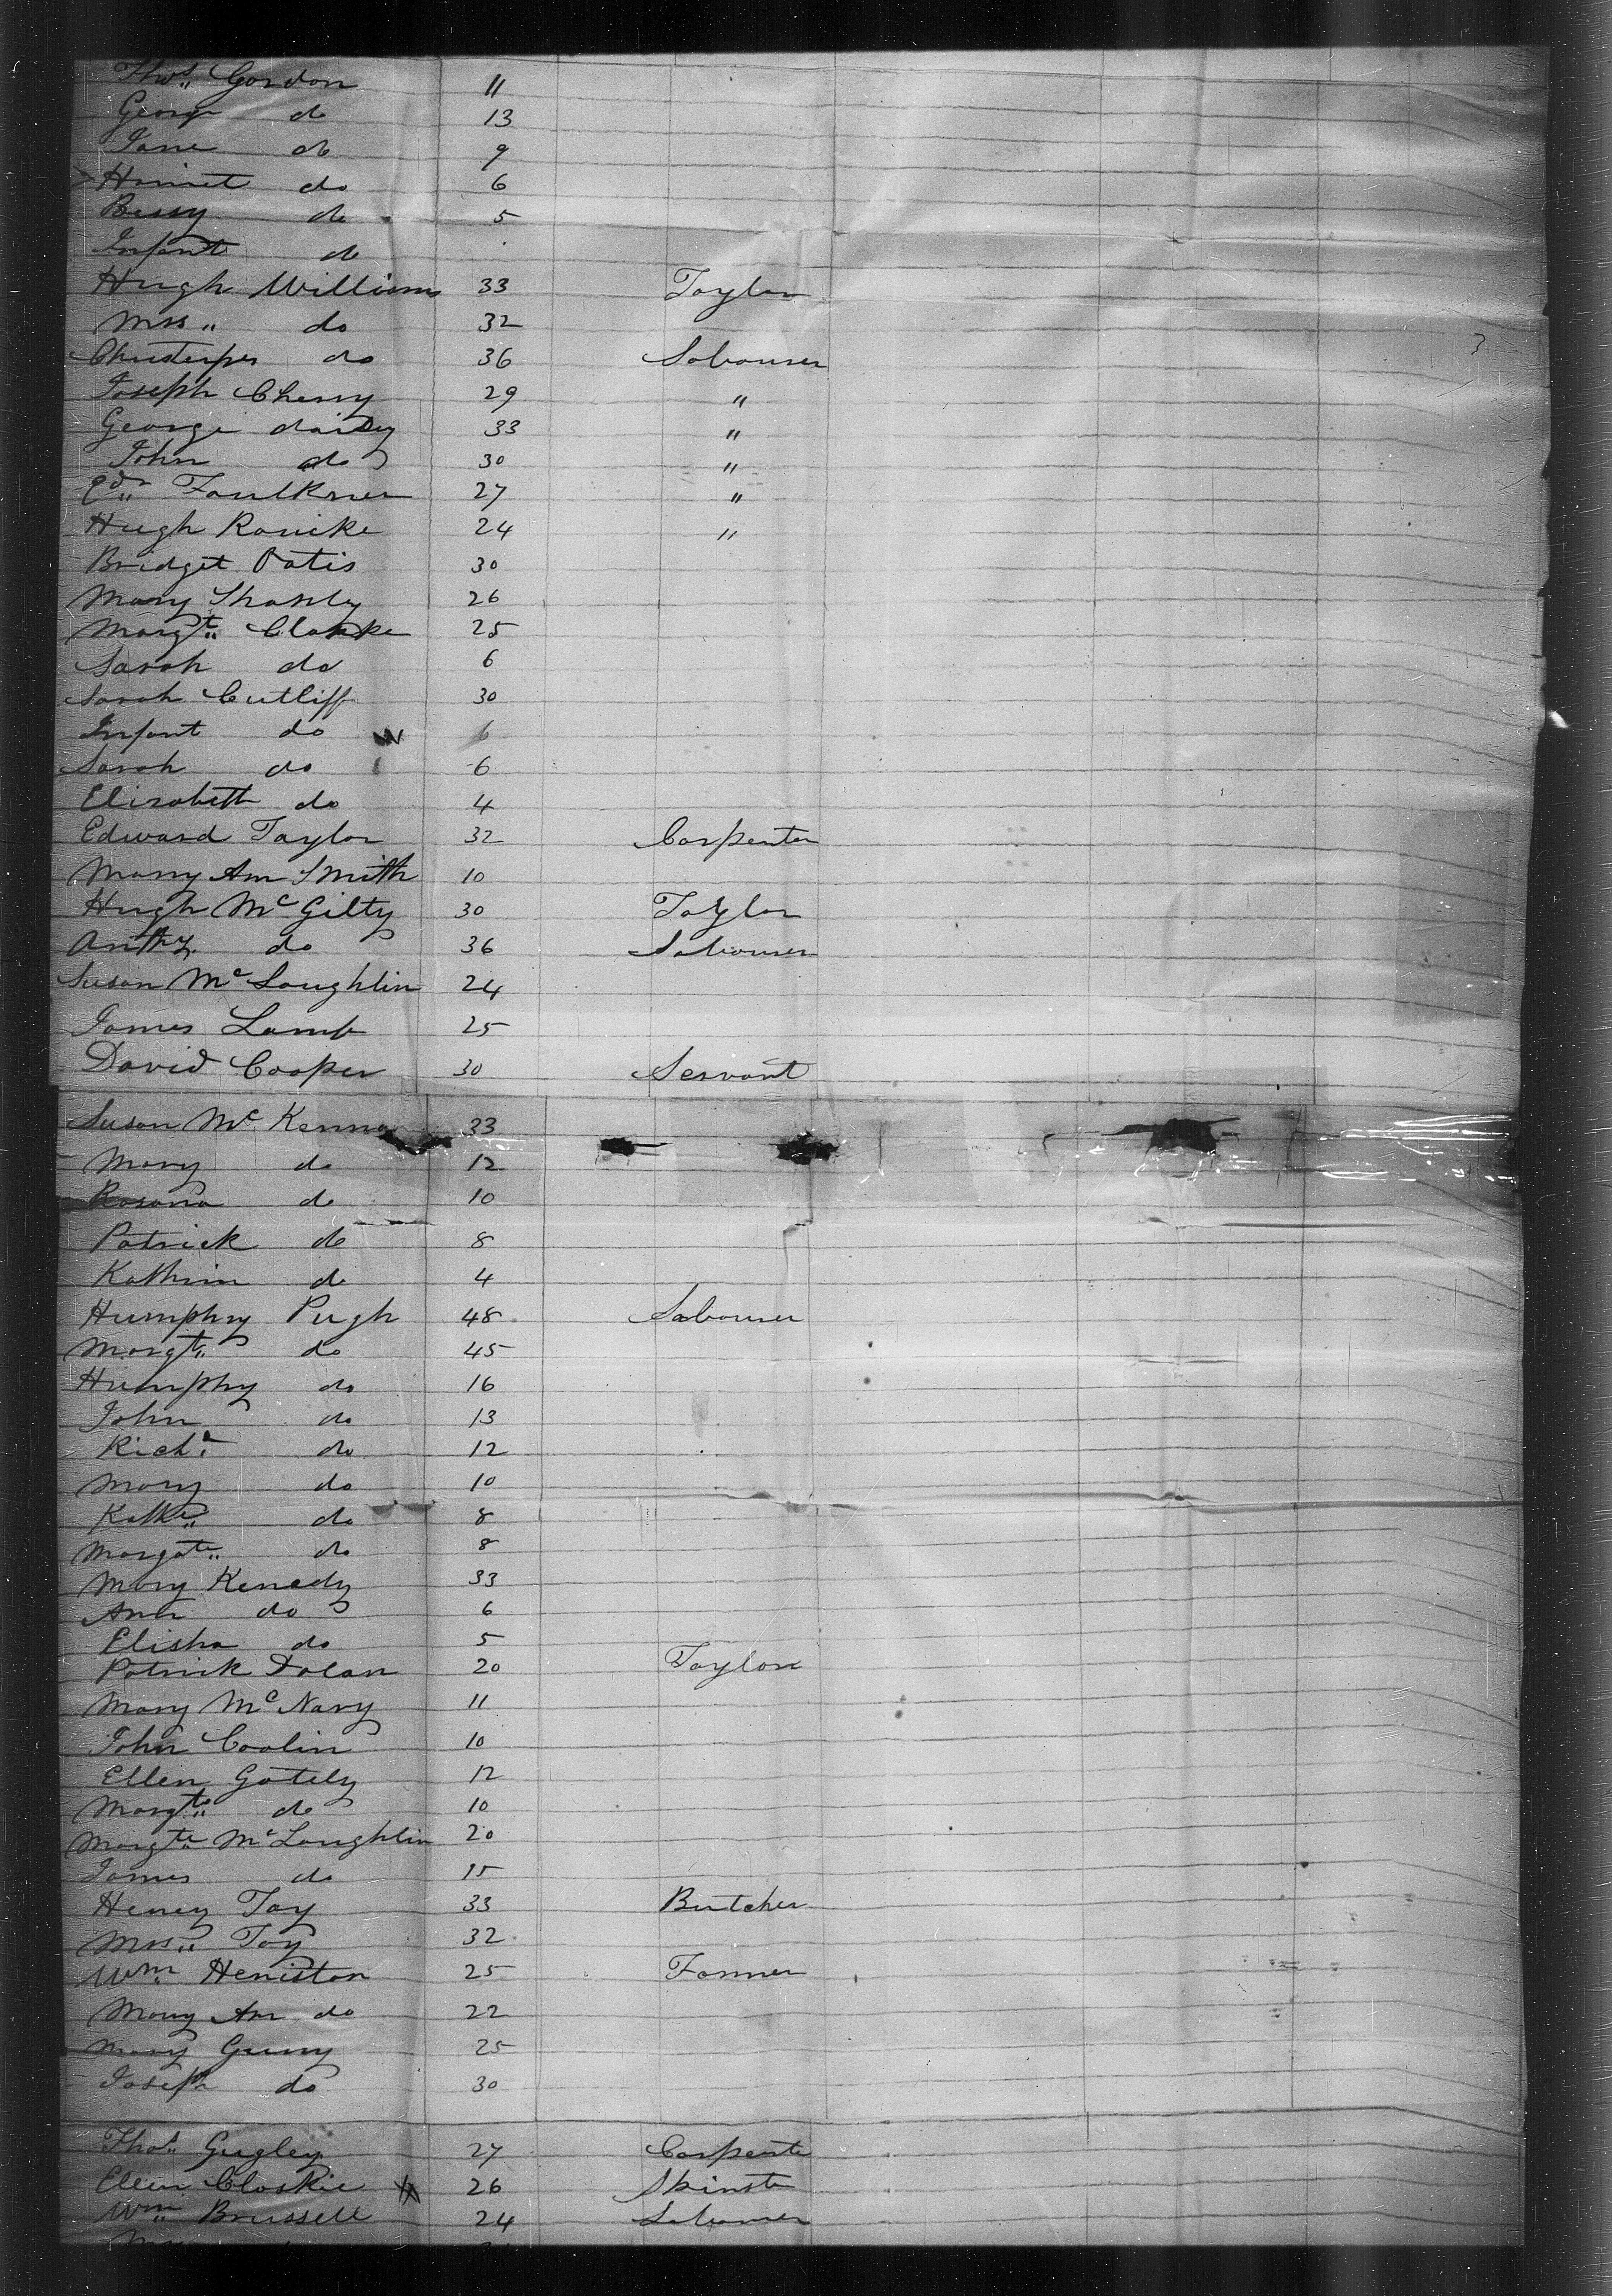 Thos. Gordon 11
George do 13
Jane do 9
Harriet do 6
Bessy do 5
Infant do
Hugh Williams 33 Taylor
Mrs " do 32
do 36 Labourer 3
Joseph Cherry 29 "
George daisey 33 "
John do 30 "
Edn. Faulkner 27 "
Hugh Rourke 24 "
Bridget 30
Mary 26
Margt. Clarke 25
Sarah do 6
Sarah Cutliff 30
Infant do
Sarah do 6
Elizabeth do 4
Edward Taylor 32 Carpenter
Mary Ann Smith 10
Hugh Mc Gilty 30 Taylor
Anthy. do 36 Labourer
Susan Mc Loughlin 24
James Lamb 25
David Cooper 30 Servant
Susan Mc Kenna 33
Mary do 12
Rosana do 10
Patrick do 8
Kathrin do 4
Humphry Pugh 48 Labourer
Margt. do 45
Humphy do 16
John do 13
Richd. do 12
Mary do 10
Kathe. do 8
Margate. do 8
Mary Kenedy 33
Ann do 6
Elisha do 5
Patrick Dolan 20 Taylor
Mary Mc Nary 11
John Coolin 10
Ellen Gately 12
Margte. do 10
Margte. Mc Loughlin 20
James do 15
Henry Toy 33 Butcher
Mrs " Toy 32
Wm. Heniston 25 Farmer
Mary Ann do 22
Mary 25
Joseph do 30
Thos. Gugley 27 Carpente
Ellen Closkie 26 Spinste
Wm. Brussell 24 Labourer